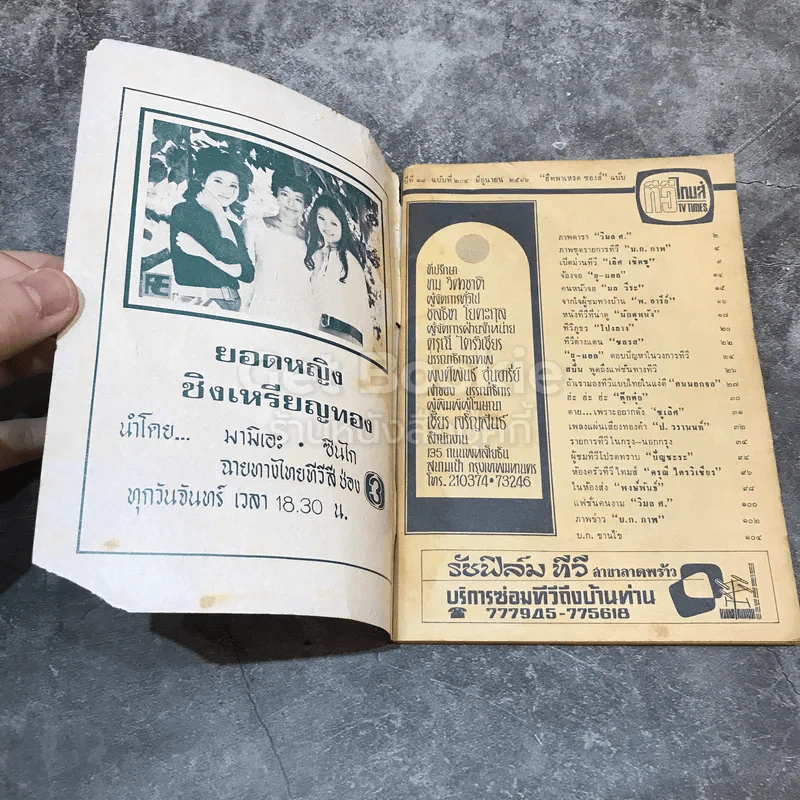 ยอดหญิง
ชิงเหรียญทอง
นำโดย... มามิเอะ . ซินโก
ฉายทางไทยทีวีสี ช่อง 3
ทุกวันจันทร์ เวลา 18.30 น.
ปีที่ ๑๘ ฉบับที่ ๒๐๔ มิถุนายน ๒๕๑๖ "ฮิทพาเหรด ซองส์" ฉบับ
ทีวีไทมส์
TV TIMES
ที่ปรึกษา
ผู้จัดการทั่วไป
ผู้จัดการฝ่ายจำหน่าย
ดรุณี ไตรวิเชียร
บรรณาธิการภาพ
เจ้าของ บรรณาธิการ
ผู้พิมพ์ผู้โฆษณา
สำนักงาน
135 ถนนเพชรเกษม
กรุงเทพมหานคร
โทร. 210374 • 73246
ภาพดารา "วิมล ศ." ๒
ภาพชุดรายการทีวี "บ.ก. ภาพ" ๔
เบิ่งม่านทีวี "เลิศ เชิดชู" ๙
จ้องจอ "ยู-แอล" ๑๓
คนหน้าจอ "มล วีระ" ๑๔
จากใจผู้ชมทางบ้าน "พ. อารีย์" ๑๖
หนังทีวีที่น่าดู "นักดูหนัง" ๑๗
ทีวีภูธร "โปงลาง" ๒๐
ทีวีต่างแดน "ชลรส" ๒๒
"ยู-แอล" ตอบปัญหาในวงการทีวี ๒๔
สปัน พูดถึงแฟชั่นทางทีวี
ถ้าเรามองทีวีแบบไทยในแง่ดี "คนนอกจอ" ๒๗
ฮ่ะ ฮ่ะ ฮ่ะ "ตุ๊กต่อ" ๓๐
ตาย...เพราะอยากดัง "ชูเลิศ" ๓๑
เพลงแผ่นเสียงทองคำ "ป. วรานนท์" ๓๔
รายการทีวีในกรุง-นอกกรุง
ผู้ชมทีวีโปรดทราบ "ปัญชะระ"
ห้องครัวทีวีไทมส์ "ดรุณี ไตรวิเชียร" ๙๖
ในห้องส่ง "พงษ์พันธ์" ๙๘
แฟชั่นคนงาม "วิมล ศ." ๑๐๐
ภาพข่าว "บ.ก. ภาพ" ๑๐๒
บ.ก. ขานไข ๑๐๔
รัชฟิล์ม ทีวี สาขาลาดพร้าว
บริการซ่อมทีวีถึงบ้านท่าน
☎ 777945-775618
Get Bookie
ร้านหนังสือบุ๊คกี้